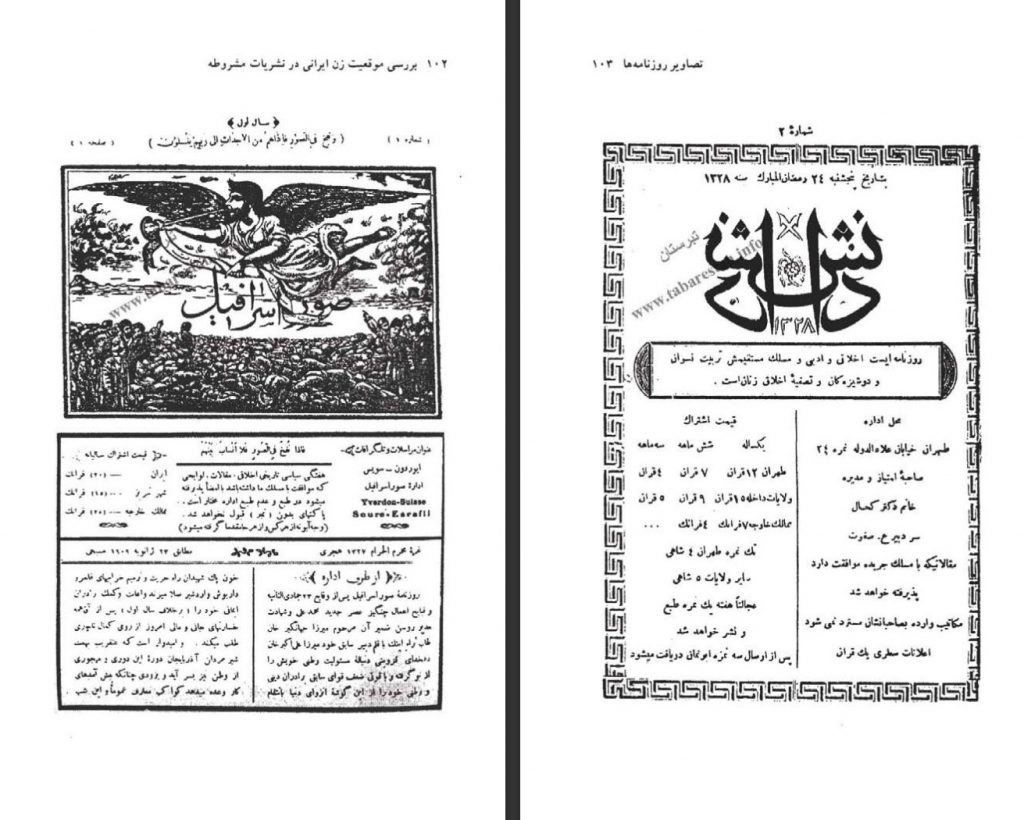 ۱۰۲ بررسی موقعیت زن ایرانی در نشریات مشروطه
﴿ سال اول ﴾
( شماره ۱ )
( ونفخ فی الصور فاذاهم من الاجداث الی ربهم ینسلون )
( صفحه ۱ )
صور اسرافیل
عنوان مراسلات و تلگرافات
ایوردون ـ سویس
ادارهٔ صوراسرافیل
Yverdon-Suisse
Soure-Esrafil
فاذا نفخ فی الصور فلا انساب بینهم
هفتگی سیاسی تاریخی اخلاقی، مقالات، لوایحی
که موافقت با مسلک ما داشته باشد با امضا پذرفته
میشود در طبع و عدم طبع اداره مختار است .
پاکتهای بدون ( تمبر ) قبول نخواهد شد .
( وجه آبونه از هر کس و از هر جا مقدما گرفته میشود )
قیمت اشتراک سالیانه
ایران — (۲۰) فرانک
شهر تبریز … (۱۵) فرانک
ممالک خارجه — (۲۰) فرانک
غرهٔ محرم الحرام ۱۳۲۷ هجری
مطابق ۲۳ ژانویه ۱۹۰۹ مسیحی
﴿ از طرف اداره ﴾
روزنامهٔ صوراسرافیل پس از وقایع ۲۳ جمادی الثانیه
و فجایع اعمال چنگیز عصر جدید محمد علی و شهادت
مدیر روشن ضمیر آن مرحوم میرزا جهانگیر خان
طاب ثراه اینک با قلم دبیر سابق خود میرزا علی اکبر خان
دهخدای قزوینی دنبالهٔ مسئولیت وطنی خویش را
از نو گرفته و با قوتی ضعف قوای سابق برادران دینی
و وطنی خود را از این گوشهٔ انزوای دنیا بانتقام
خون پاک شهیدان راه حریت و ترمیم خرابیهای قاهره
داریوش و اردشیر صلا میزند و اعانت و کمک
خود را ( بر خلاف سال اول ) پس از آن همه
خسارتهای جانی و مالی امروز از روی کمال ناچاری
طلب میکند . و امیدوار است که عنقریب بهمت
شیر مردان آذربایجان دورهٔ این دوری و مهجوری
از وطن نیز بسر آید و بزودی چنانکه منش آمدهای
کار وعده میدهد کواکب معاری عموماً و این شب
تصاویر روزنامه‌ها ۱۰۳
شمارهٔ ۲
بتاریخ پنجشنبه ۲۴ رمضان المبارک سنه ۱۳۲۸
دانش
۱۳۲۸
روزنامه ایست اخلاقی و ادبی و مسلک مستقیمش تربیت نسوان
و دوشیزه‌گان و تصفیهٔ اخلاق زنان است .
محل اداره
طهران خیابان علاءالدوله نمره ۲۴
صاحبهٔ امتیاز و مدیره
خانم دکتر کحال
سر دبیر ع. صفوت
مقالاتیکه با مسلک جریده موافقت دارد
پذیرفته خواهد شد
مکاتیب وارده بصاحبانشان مسترد نمی شود
اعلانات سطری یک قران
قیمت اشتراک
یکساله شش ماهه سه ماهه
طهران ۱۲ قران ۷ قران ۴ قران
ولایات داخله ۱۵ قران ۹ قران ۵ قران
ممالک خارجه ۷ فرانک ۴ فرانک …
تک نمره طهران ۴ شاهی
سایر ولایات ۵ شاهی
عجالتاً هفته یک نمره طبع
و نشر خواهد شد
پس از ارسال سه نمره ابونمانی دریافت میشود
تبرستان
www.tabarestan.info